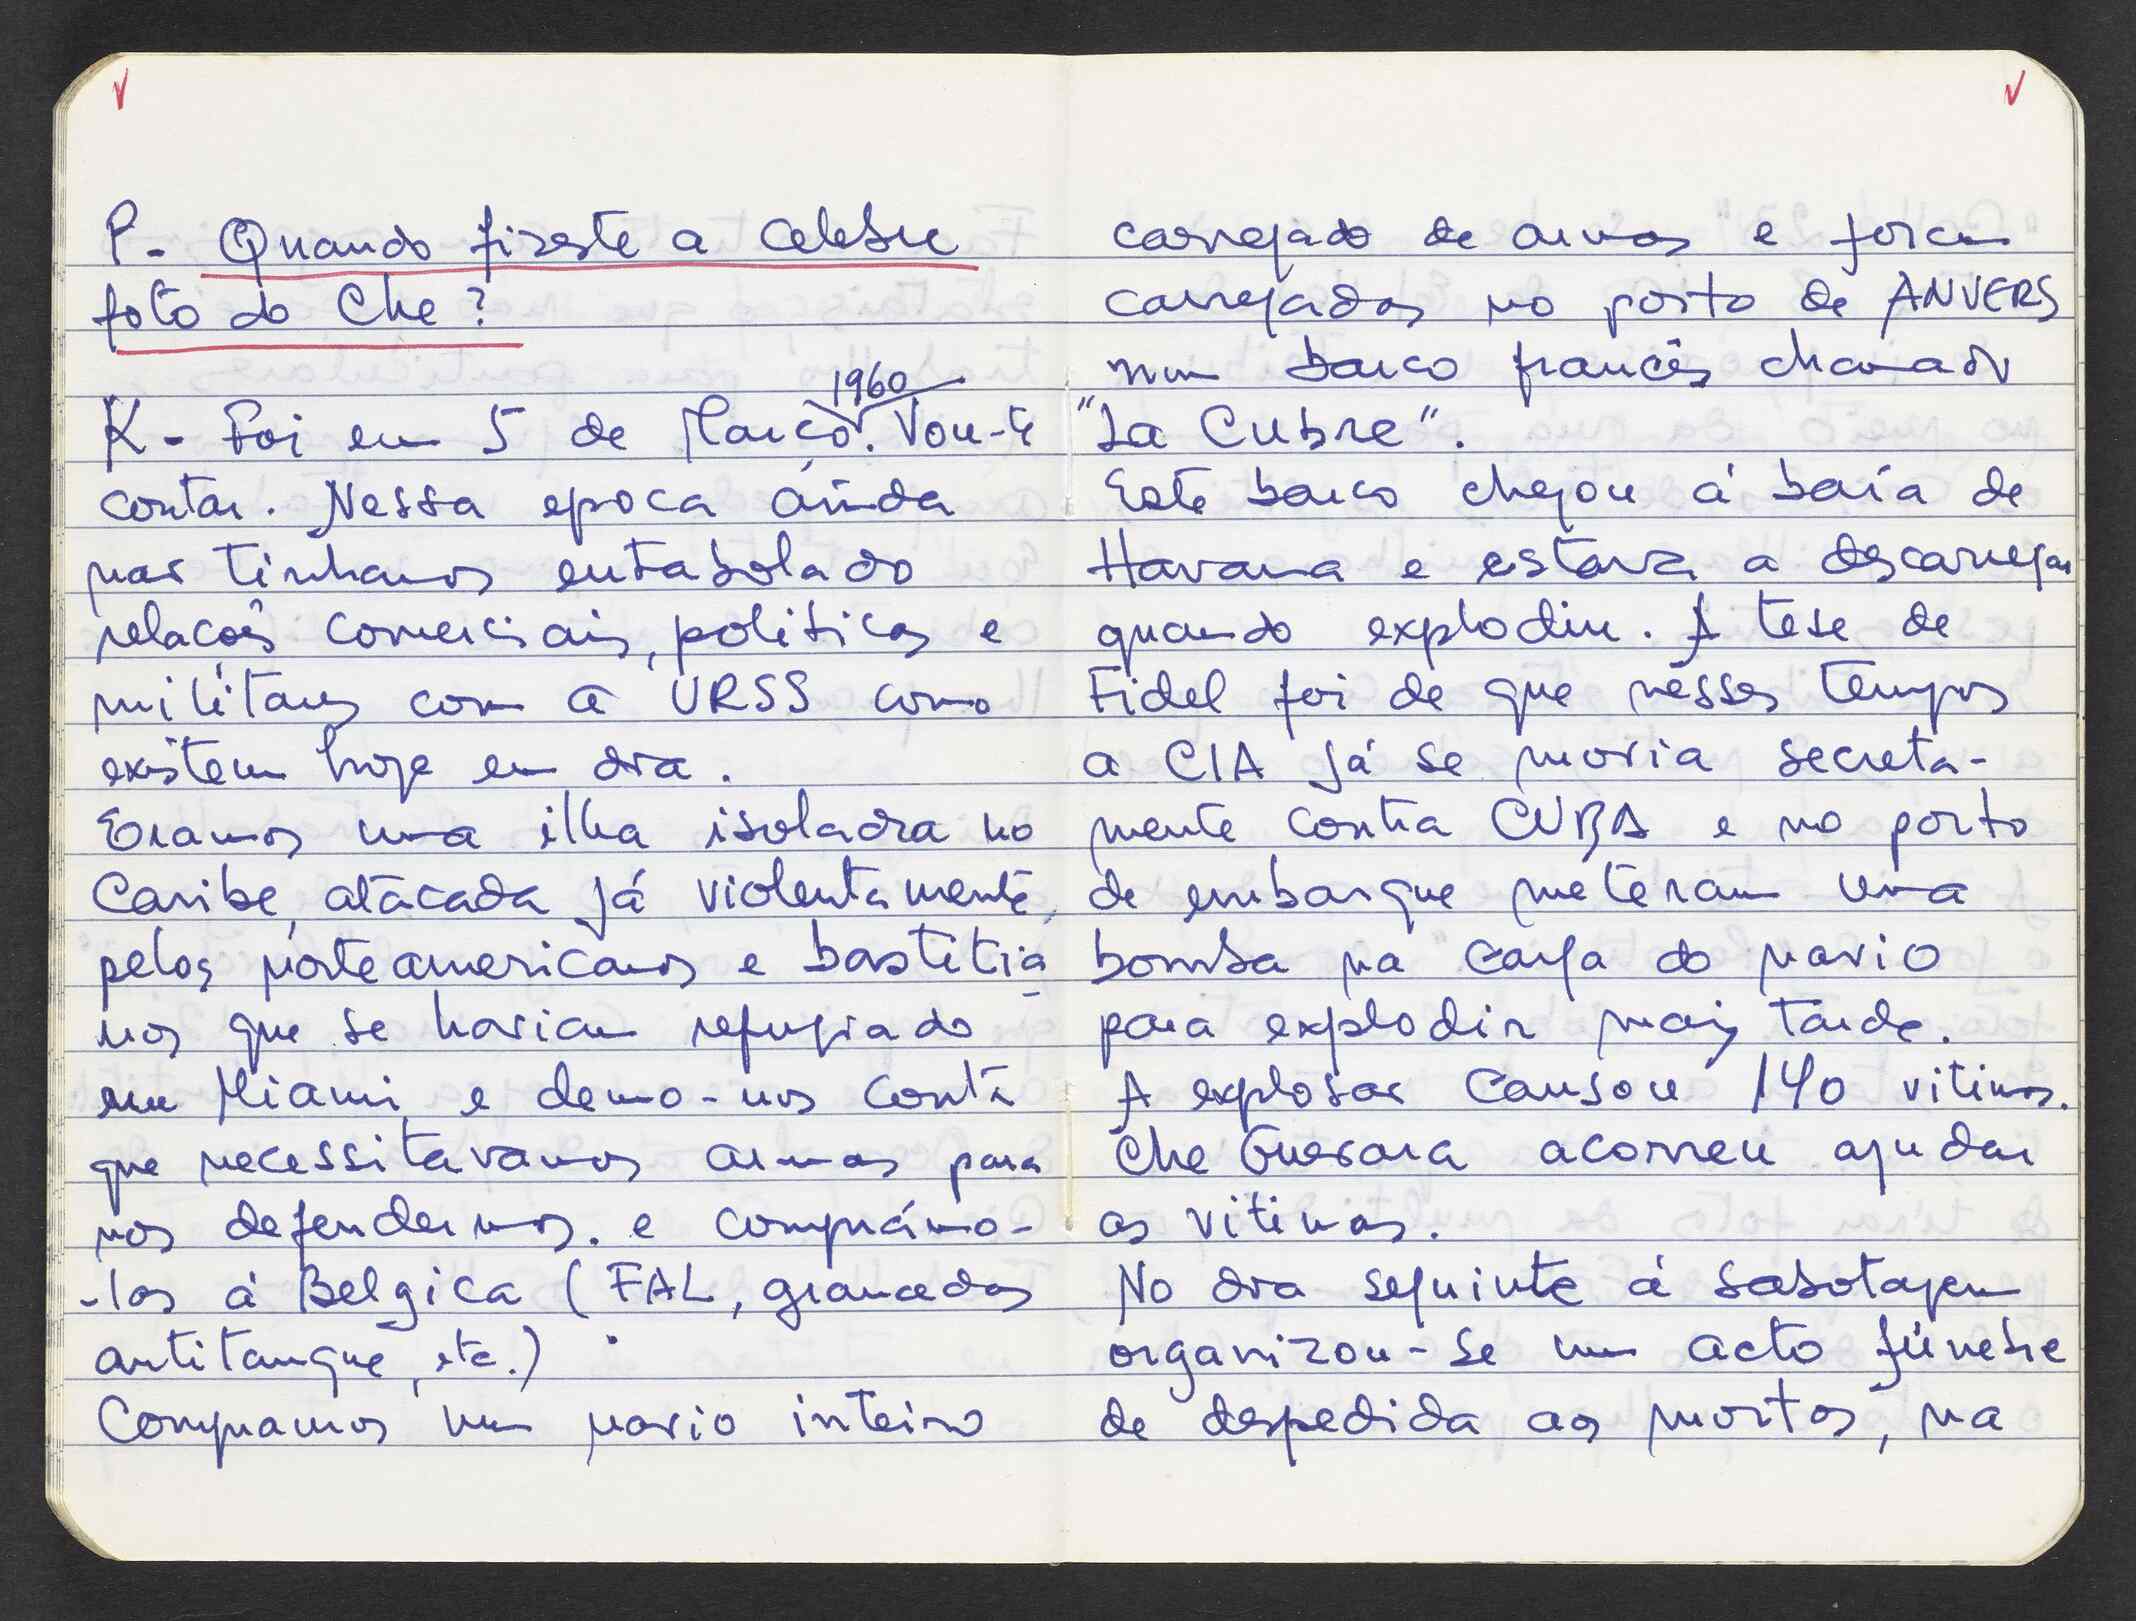 P- Quando fizeste a celebre
foto do Che?
1960
K- Foi em 5 de Março. Vou-te
contar. Nessa epoca ainda
nao tinhamos entabolado
relacoẽs comerciais, politicas e
militares com a URSS como
existem hoje em dia.
Eramos uma ilha isolada no
Caribe, atacada já violentamente,
pelos norteamericanos e bastitia
nos que se haviam refugiado
em Miami, e demo-nos conta
que necessitavamos armas para
nos defendermos. e comprámo-
-las á Belgica (FAL, granadas
antitanque, etc.)
Compramos um navio inteiro
carregado de armas e foram
carregadas no porto de ANVERS
num barco francês chamado
"La Cubre".
Este barco chegou á baía de
Havana e estava a descarregar
quando explodiu. A tese de
Fidel foi de que nesses tempos
a CIA já se movia secreta-
mente contra CUBA e no porto
de embarque meteram uma
bomba na carga do navio
para explodir mais tarde.
A explosao causou 140 vitimas.
Che Guevara acorreu ajudar
as vitimas.
No dia seguinte á sabotagem
organizou-se um acto fúnebre
de despedida aos mortos, na